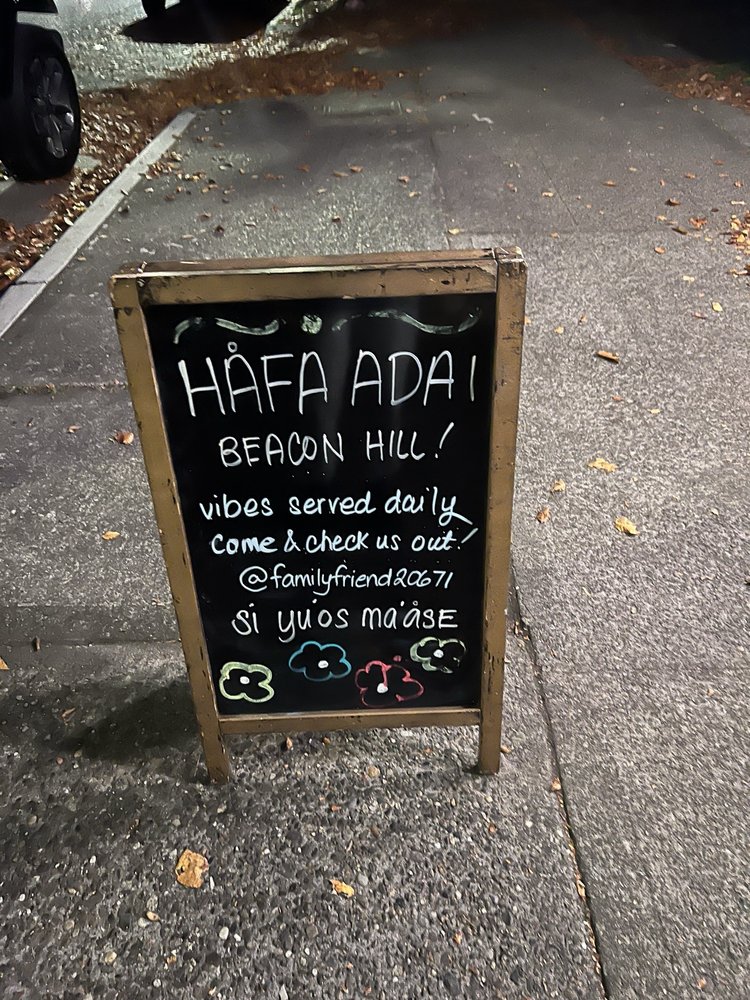 HÅFA ADAI
BEACON HILL!
vibes served daily
come & check us out!
@familyfriend20671
si yu'os ma'åse